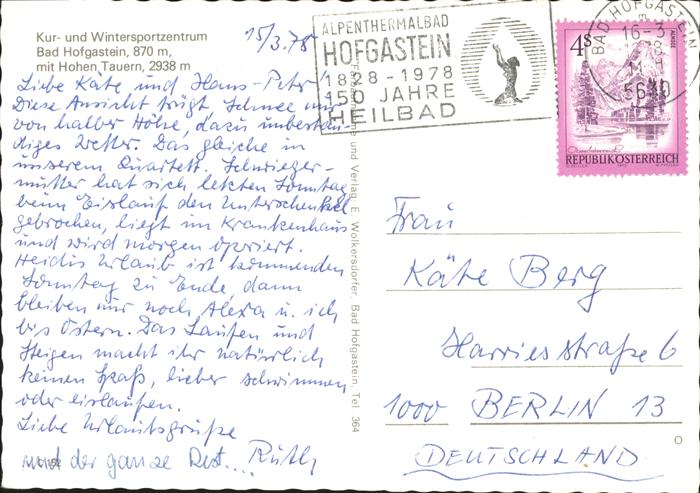 Kur- und Wintersportzentrum
Bad Hofgastein, 870 m,
mit Hohen Tauern, 2938 m
15/3.78
Liebe Käte und Hans-Peter
Diese Ansicht trügt Schnee nur
von halber Höhe, dazu unbestän-
diges Wetter. Das gleiche in
unserem Quartett. Schwieger-
mutter hat sich letzten Sonntag
beim Eislauf den Unterschenkel
gebrochen, liegt im Krankenhaus
und wird morgen operiert.
Heidis Urlaub ist kommenden
Sonntag zu Ende, dann
bleiben nur noch Alexa u. ich
bis Ostern. Das Laufen und
Steigen macht ihr natürlich
keinen Spaß, lieber schwimmen
oder eislaufen.
Liebe Urlaubsgrüße
und der ganze Rest.... Ruth
und Verlag E. Wolkersdorfer, Bad Hofgastein, Tel. 364
ALPENTHERMALBAD
HOFGASTEIN
1828-1978
150 JAHRE
HEILBAD
BAD HOFGASTEIN
16-3
5630
4S
ALMSEE
REPUBLIK ÖSTERREICH
Frau
Käte Berg
Harriesstraße 6
1000 BERLIN 13
DEUTSCHLAND